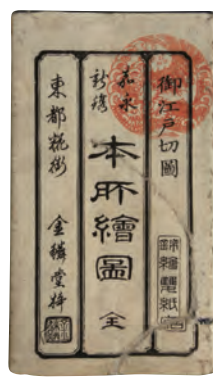 御江戸切圖
嘉永
新鐫
本所繪圖 全
東都麹街 金鱗堂梓